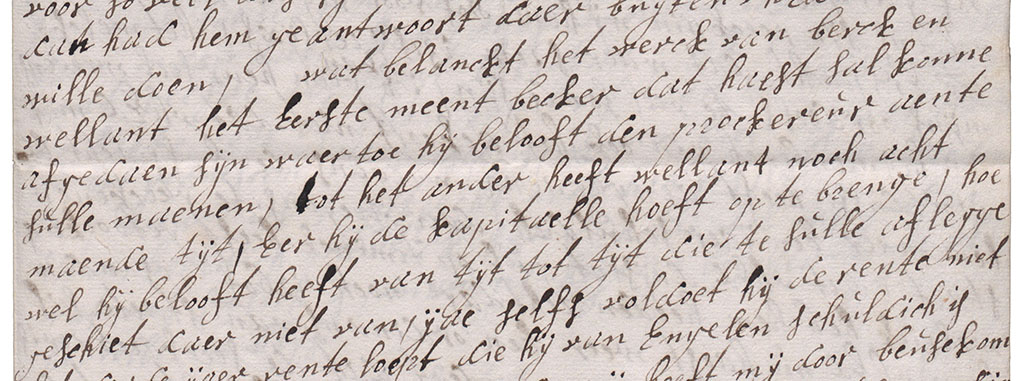 dan had hem geantwoort daer buyten
wille doen, wat belanckt het werck van berck en
wellant het Eerste meent becker dat haest sal konne
afgedaen sijn waertoe hij belooft den prockereur aente
sulle maenen, tot het ander heeft wellant noch acht
maende tijt, Eer hij de kapitaelle hoeft op te brenge, hoe
wel hij belooft heeft van tijt tot tijt die te sulle aflegge
geschiet daer niet van, jae selfs voldoet hij de rente niet
rente loept die hij van Engelen schuldich is
heeft mij door beusekom